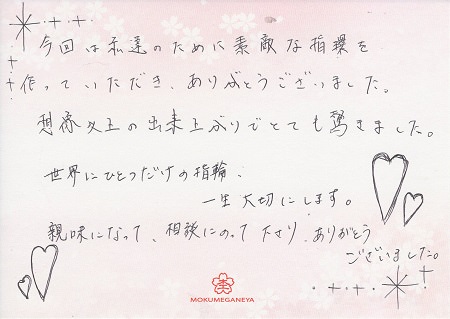 今回は私達のために素敵な指環を
作っていただき、ありがとうございました。
想像以上の出来上がりでとても驚きました。
世界にひとつだけの指輪、
一生大切にします。
親味になって、相談にのって下さり、ありがとう
ございました。
MOKUMEGANEYA